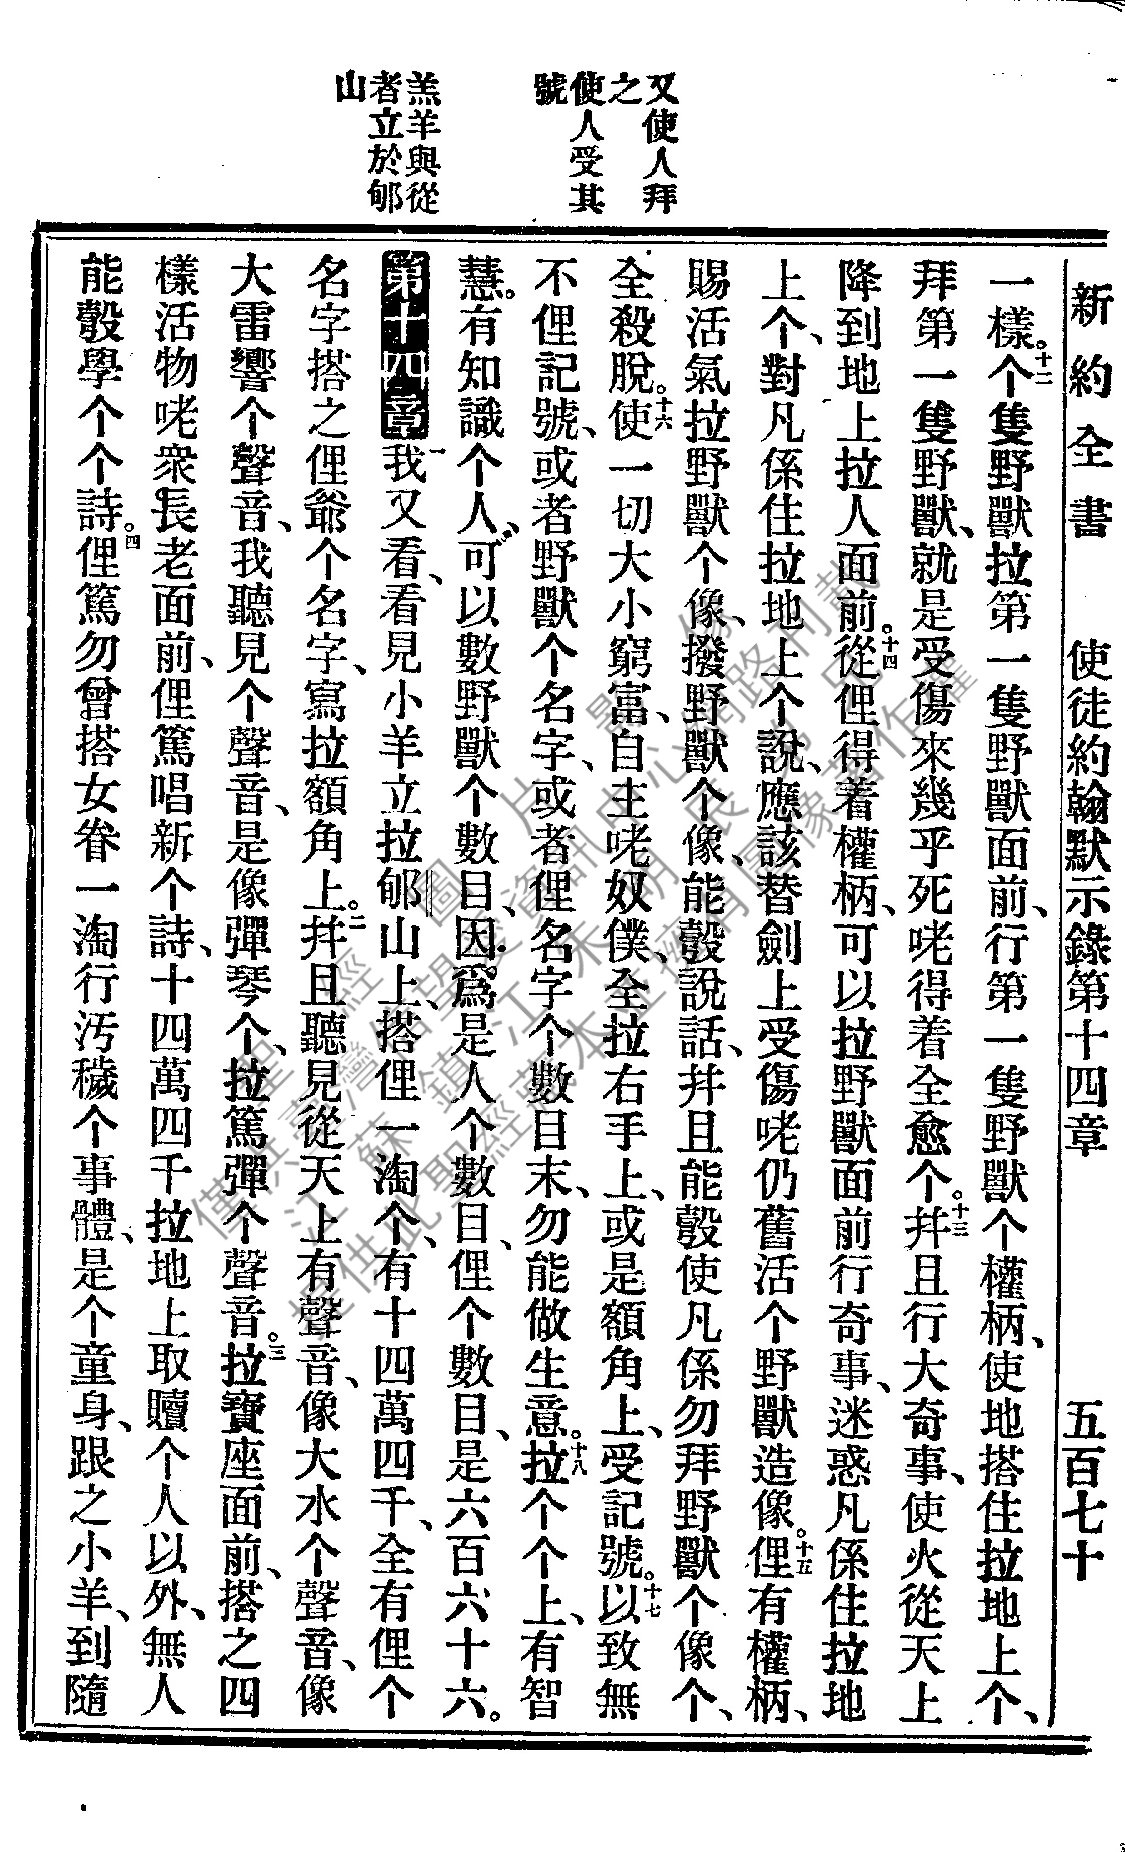 新約全書 使徒約翰默示錄第十四章 五百七十
又使人拜
之
使人受其
號
羔羊與從
者立於郇
山
一樣。十二个隻野獸拉第一隻野獸面前、行第一隻野獸个權柄、使地搭住拉地上个、
拜第一隻野獸、就是受傷來幾乎死咾得着全愈个。十三幷且行大奇事、使火從天上
降到地上拉人面前。十四從俚得着權柄、可以拉野獸面前行奇事、迷惑凡係住拉地
上个、對凡係住拉地上个說、應該替劍上受傷咾仍舊活个野獸造像。十五俚有權柄、
賜活氣拉野獸个像、撥野獸个像、能彀說話、幷且能彀使凡係勿拜野獸个像个、
全殺脫。十六使一切大小窮富、自主咾奴僕、全拉右手上、或是額角上、受記號。十七以致無
不俚記號、或者野獸个名字、或者俚名字个數目末、勿能做生意。十八拉个个上、有智
慧。有知識个人、可以數野獸个數目、因爲是人个數目、俚个數目、是六百六十六。
第十四章 一我又看、看見小羊立拉郇山上、搭俚一淘个、有十四萬四千、全有俚个
名字搭之俚爺个名字、寫拉額角上。二幷且聽見從天上有聲音、像大水个聲音、像
大雷響个聲音、我聽見个聲音、是像彈琴个、拉篤彈个聲音。三拉寶座面前、搭之四
樣活物咾衆長老面前、俚篤唱新个詩、十四萬四千拉地上取贖个人以外、無人
能彀學个个詩。四俚篤勿曾搭女眷一淘行汚穢个事體、是个童身、跟之小羊、到隨